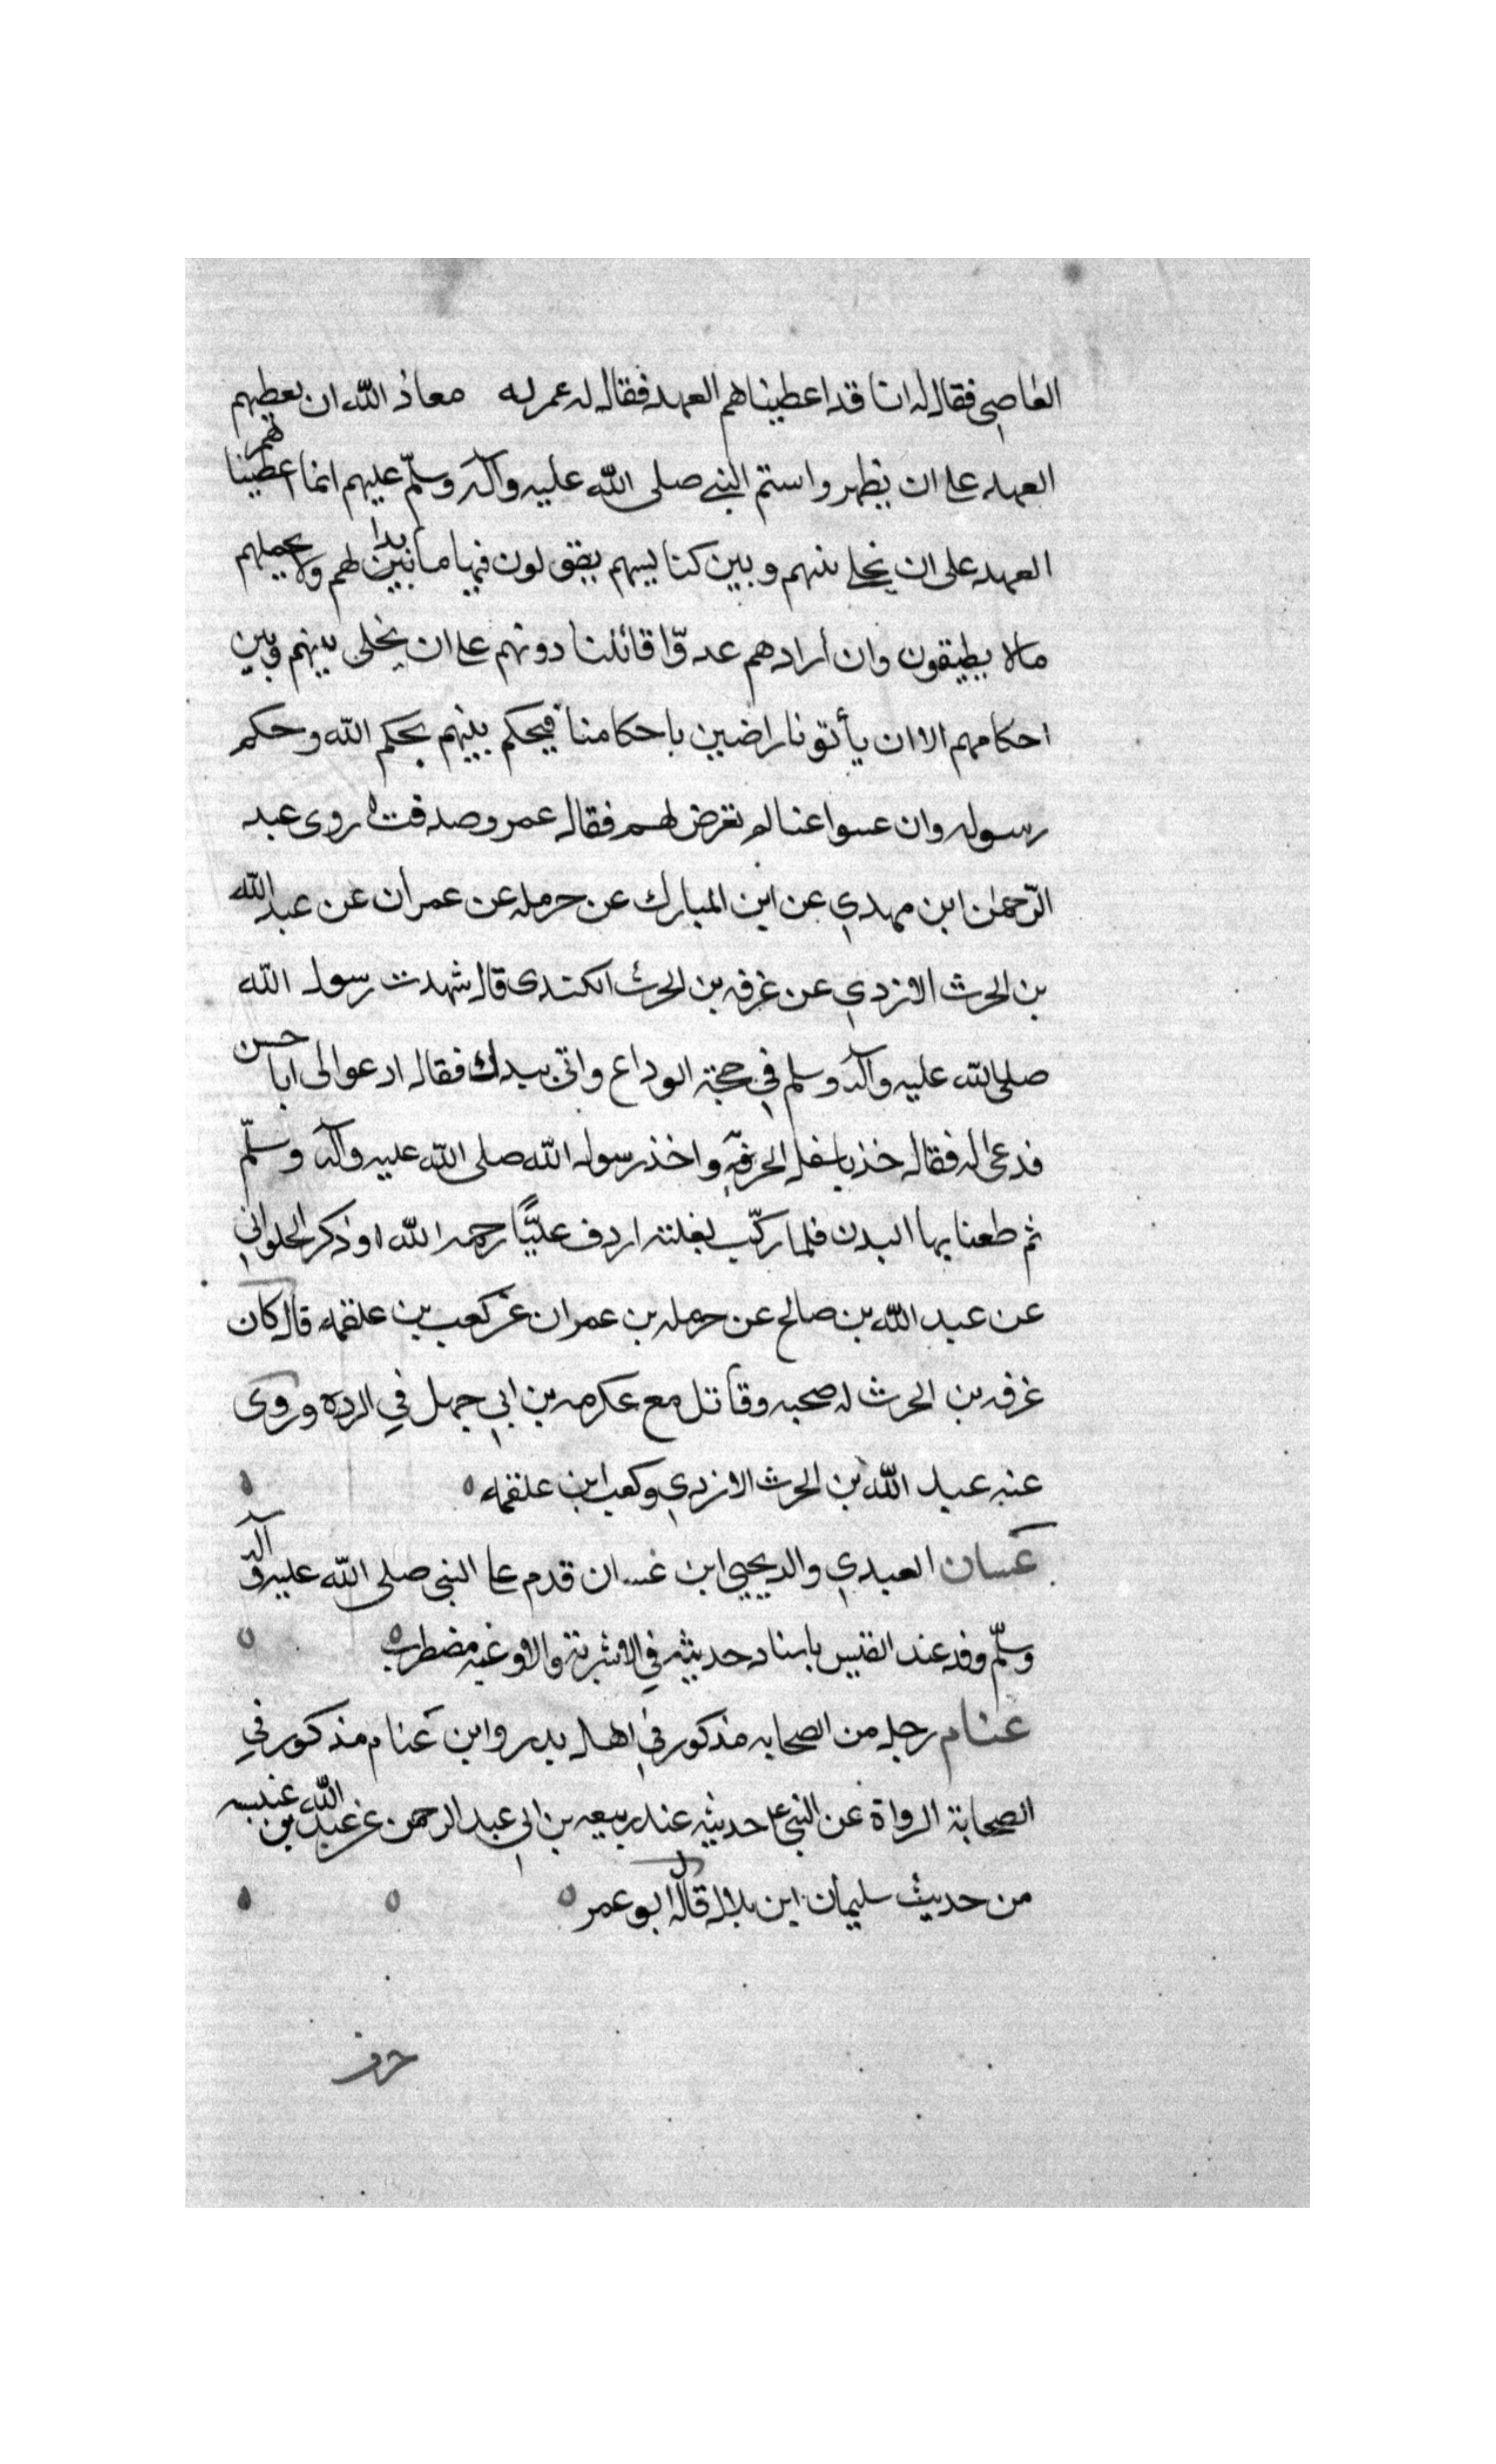 العاصي فقال له انا قد اعطيناهم العهد فقال له عمر له معاذ الله ان يعطيهم
العهد على ان يظهروا ستم النبي صلى الله عليه وآله وسلّم عليهم انما اعطيناهم
العهد على ان نخلي بينهم وبين كنايسهم يقولون فيها ما بدا لهم ولا يحملهم
مالا يطيقون وان أرادهم عدوّا قاتلنا دونهم على ان يخلى بينهم وبين
احكامهم الا ان يأتونا راضين باحكامنا فيحكم بينهم بحكم الله وحكم
رسوله وان عسوا عنا لم نعرض لهم فقال عمرو صدقت روى عبد
الرّحمٰن ابن مهدي عن ابن المبارك عن حرمله عن عمران عن عبد الله
بن الحرث الازدي عن غرفه بن الحرث الكندى قال شهدت رسول الله
صلى الله عليه وآله وسلم في حجة الوداع واتى ببدن فقال ادعوا لى ابا حسن
فدعى له فقال خذ باسفل الحربة واخذ رسول الله صلى الله عليه وآله وسلّم
ثم طعنا بها البدن فلما ركب بغلته اردف عليًّا رحمه الله وذكر الحلواني
عن عبد الله بن صالح عن حرمله بن عمران عن كعب بن علقمه قال كان
غرفه بن الحرث له صحبه وقاتل مع عكرمه بن ابي جهل في الرده وروى
عنه عبد الله بن الحرث الازدي وكعب ابن علقمه
غسان العبدي والد يحيى ابن غسان قدم على النبي صلى الله عليه وآله
وسلّم وفد عند القيس باسناد حديثه في الاشربة والاوعيه مضطرب
غنام رجل من الصحابه مذكور في اهل بدر وابن غنام مذكور في
الصحابة الرواة عن النبي ع حديثه عند ربيعه بن ابي عبد الرحمن عن عبد الله بن عنبسه
من حديث سليمان ابن بلال قاله ابو عمر
حرف